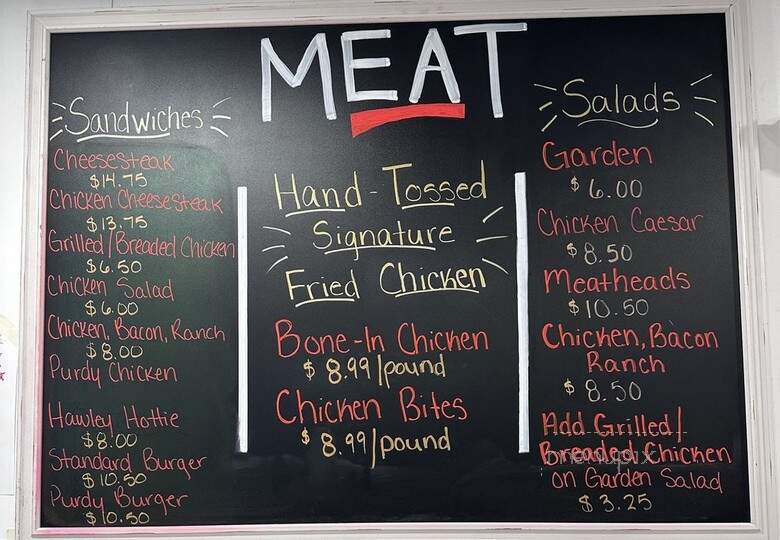 MEAT
Sandwiches
Cheesesteak
$14.75
Chicken Cheesesteak
$13.75
Grilled/Breaded Chicken
$6.50
Chicken Salad
$6.00
Chicken, Bacon, Ranch
$8.00
Purdy Chicken
Hawley Hottie
$8.00
Standard Burger
$10.50
Purdy Burger
$10.50
Hand-Tossed
Signature
Fried Chicken
Bone-In Chicken
$8.99/pound
Chicken Bites
$8.99/pound
Salads
Garden
$6.00
Chicken Caesar
$8.50
Meatheads
$10.50
Chicken, Bacon
Ranch
$8.50
Add Grilled/
Breaded Chicken
on Garden Salad
$3.25